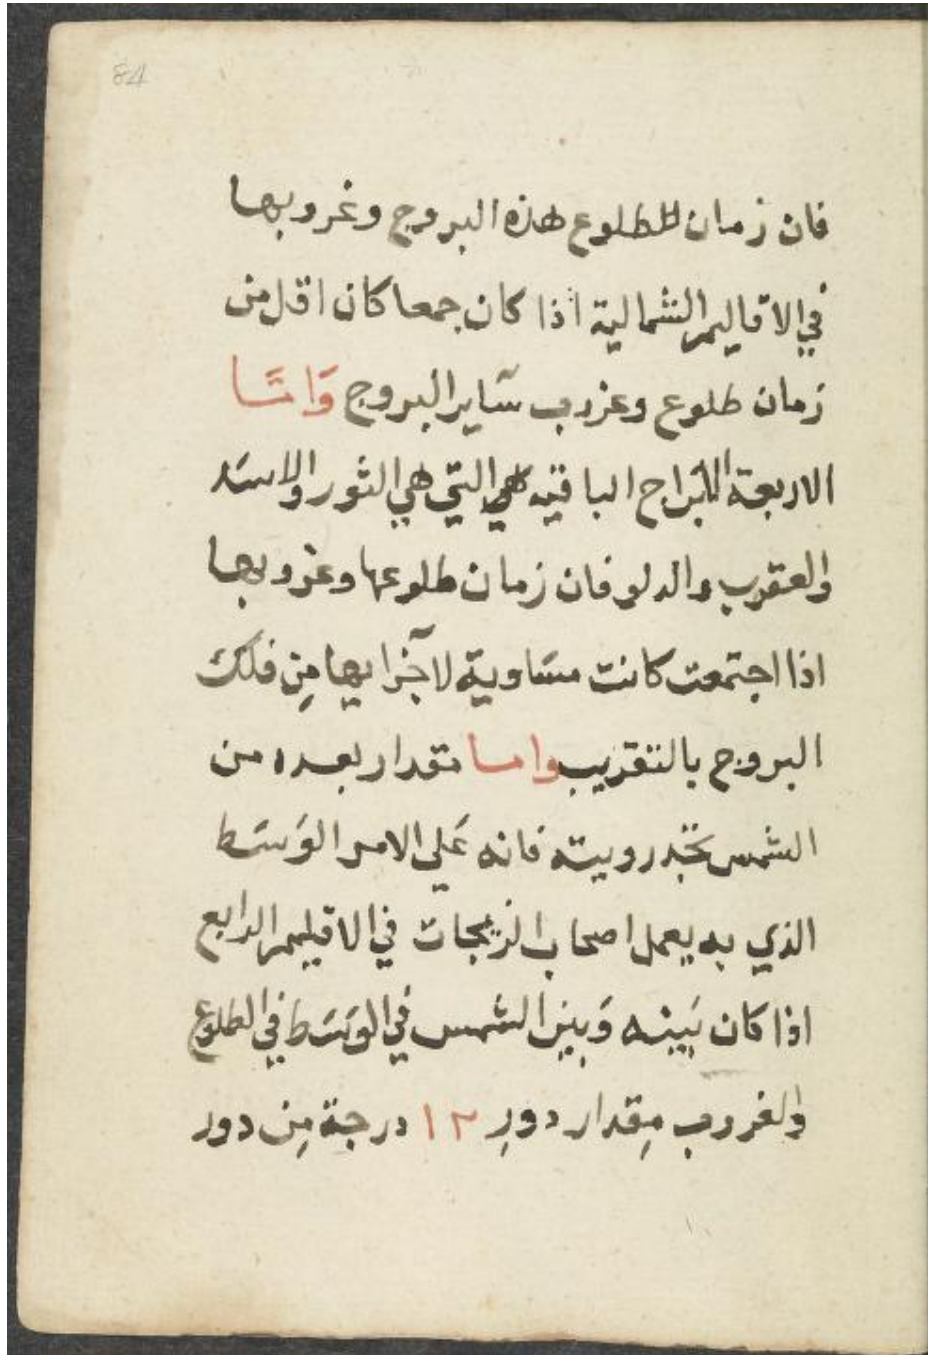 84
فان زمان للطلوع هذه البروج وغروبها
في الاقاليم الشمالية اذا كان جمعا كان اقل من
زمان طلوع وغروب سَاير البروج وَامّا
الاربعة الابراج الباقيه هي التي هي الثور والاسَد
والعقرب والدلو فان زمان طلوعها وغروبها
اذا اجتمعت كانت مسَاوية لآجزايها مِن فلك
البروج بالتقريب واما مقدار بعده من
الشمس رويته فانه عَلي الامر الوَسَط
الذي به يعمل اصحاب الزيجات في الاقليم الرابع
اذا كان بَينه وَبين الشمس في الوَسَط في الطلوع
والغروب مِقدار دورِ ١٢ درجة مِن دور